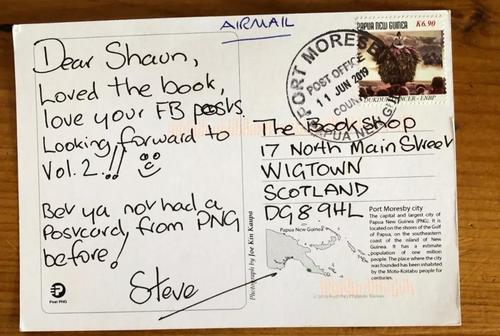 AIRMAIL
Dear Shaun,
Loved the book,
love your FB posts.
Looking forward to
Vol. 2!!
Bet ya not had a
Postcard, from PNG
before!
Steve
Post PNG
Photograph by Joe Kin Kaupa
PAPUA NEW GUINEA K6.90
DUKDUK DANCER - ENBP
PORT MORESBY
POST OFFICE
11 JUN 2019
PAPUA NEW GUINEA
The Book Shop
17 North Main Street
WIGTOWN
SCOTLAND
DG8 9HL
Papua New Guinea
Port Moresby city
The capital and largest city of
Papua New Guinea (PNG). It is
located on the shores of the Gulf
of Papua, on the southeastern
coast of the island of New
Guinea. It has a estimate
population of one million
people. The place where the city
was founded has been inhabited
by the Motu-Koitabu people for
centuries.